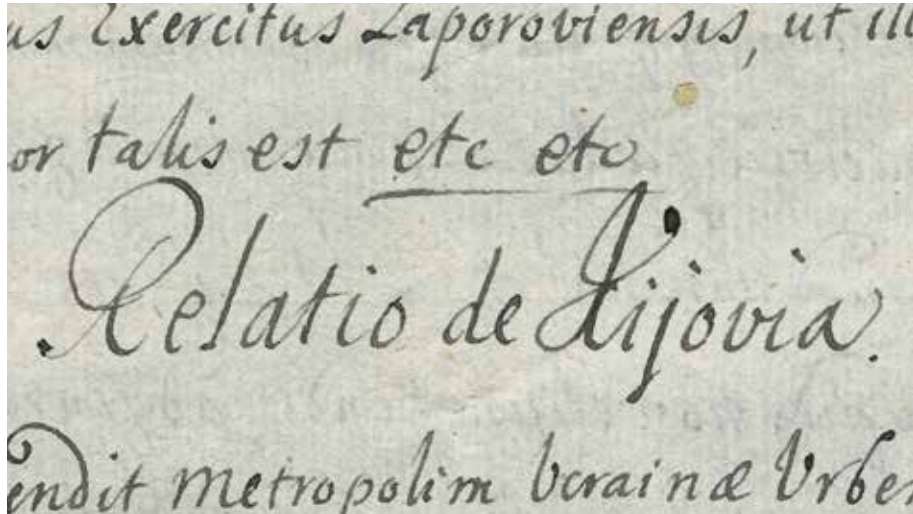 us Exercitus Zaporoviensis, ut ill
or talis est etc etc
Relatio de Kijovia.
endit Metropolim Ucrainæ Urbem